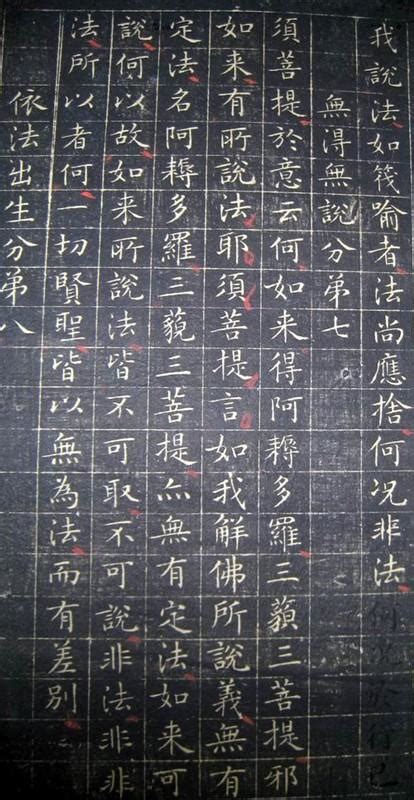 我說法如筏喻者法尚應捨何况非法
無得無說分第七
須菩提於意云何如来得阿耨多羅三藐三菩提邪
如来有所說法耶須菩提言如我解佛所說義無有
定法名阿耨多羅三藐三菩提亦無有定法如来可
說何以故如来所說法皆不可取不可說非法非非
法所以者何一切賢聖皆以無為法而有差別
依法出生分第八